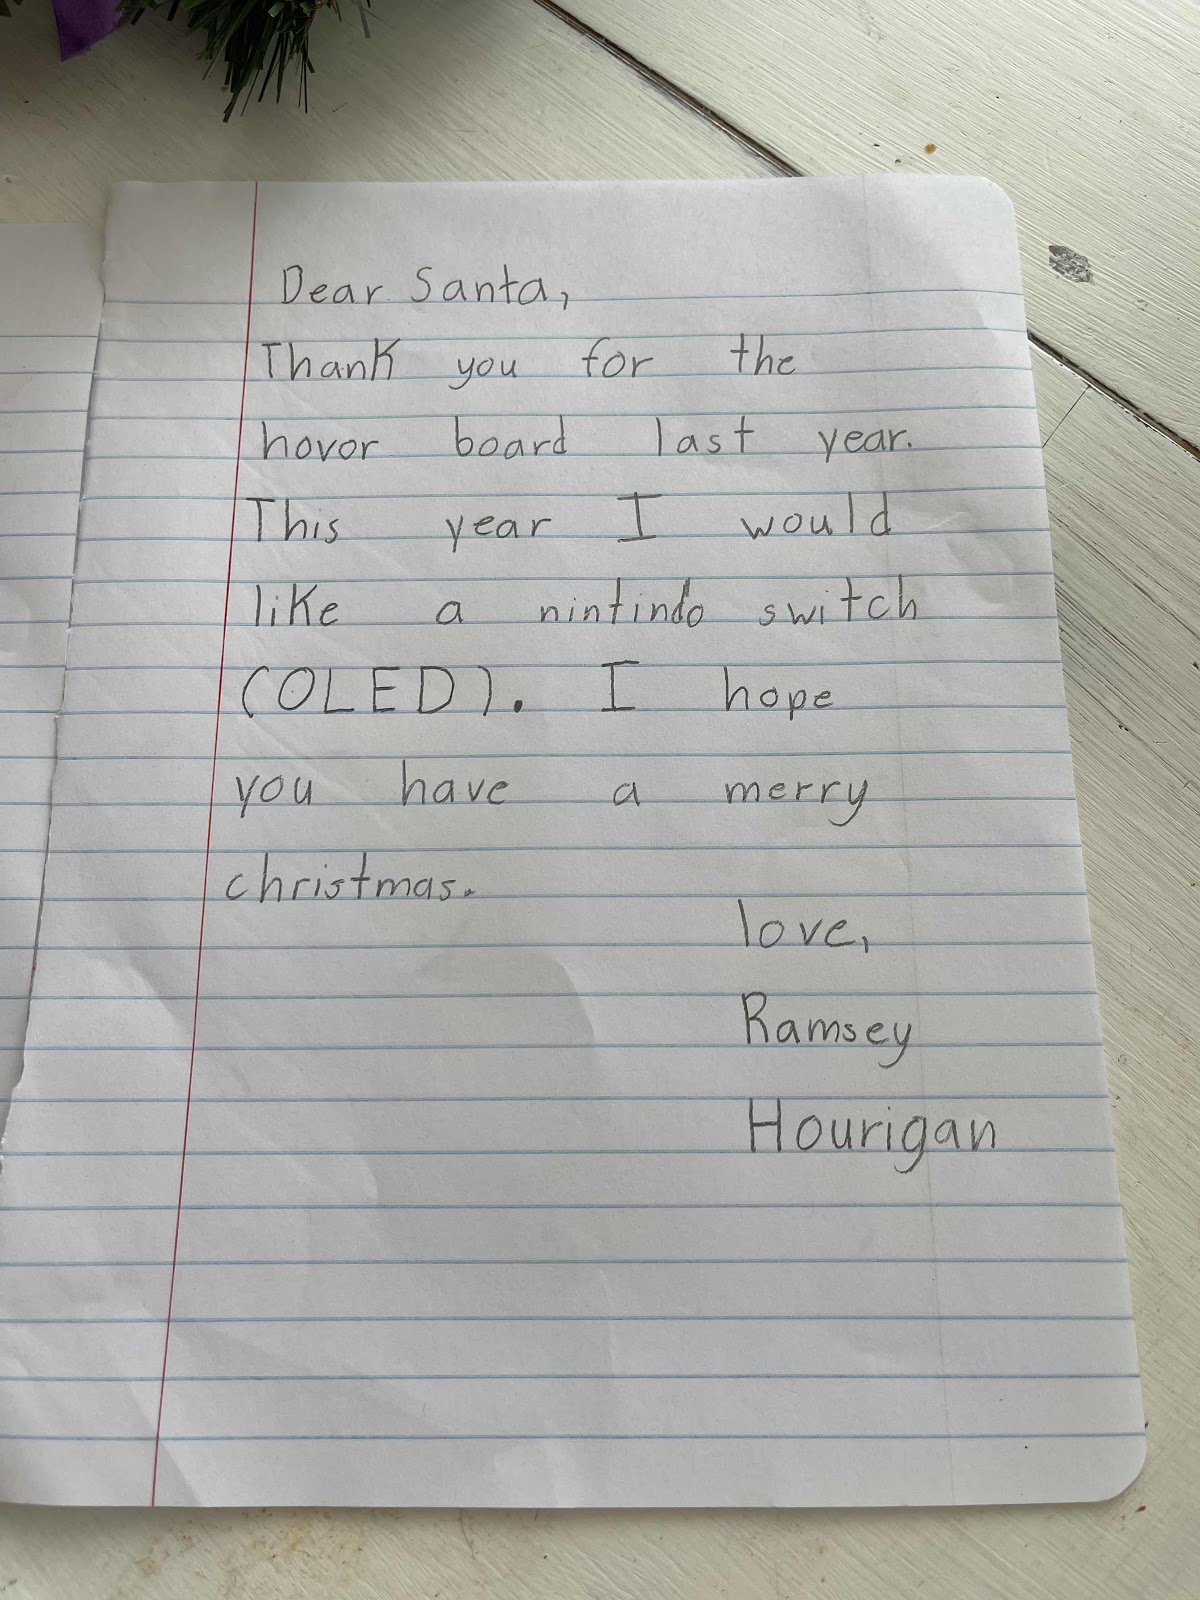 Dear Santa,
Thank you for the
hovor board last year.
This year I would
like a nintindo switch
(OLED). I hope
you have a merry
christmas.
love,
Ramsey
Hourigan